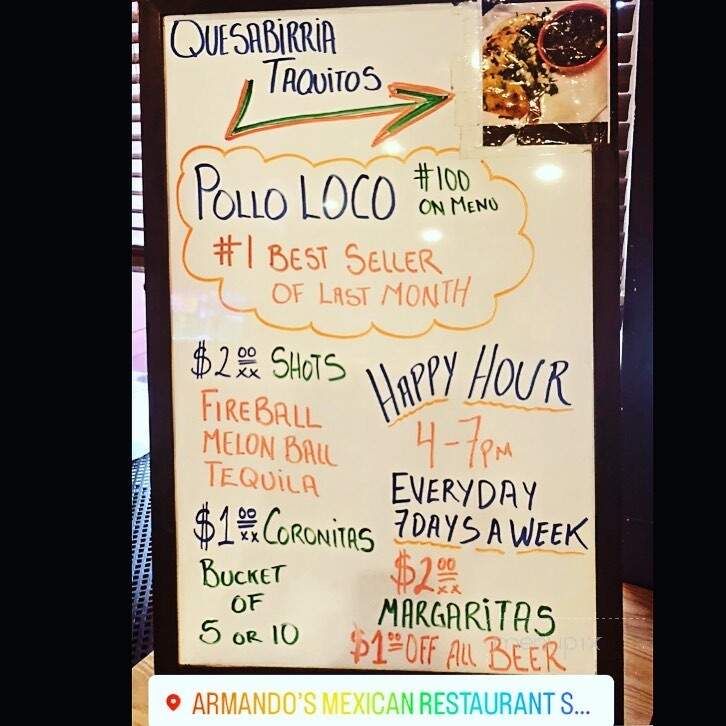 QUESABIRRIA
TAQUITOS
POLLO LOCO #100
ON MENU
#1 BEST SELLER
OF LAST MONTH
$2.00/xx SHOTS
FIREBALL
MELON BALL
TEQUILA
$1.00/xx CORONITAS
BUCKET
OF
5 OR 10
HAPPY HOUR
4-7PM
EVERYDAY
7 DAYS A WEEK
$2.00/xx
MARGARITAS
$1.00 OFF ALL BEER
ARMANDO'S MEXICAN RESTAURANT S...